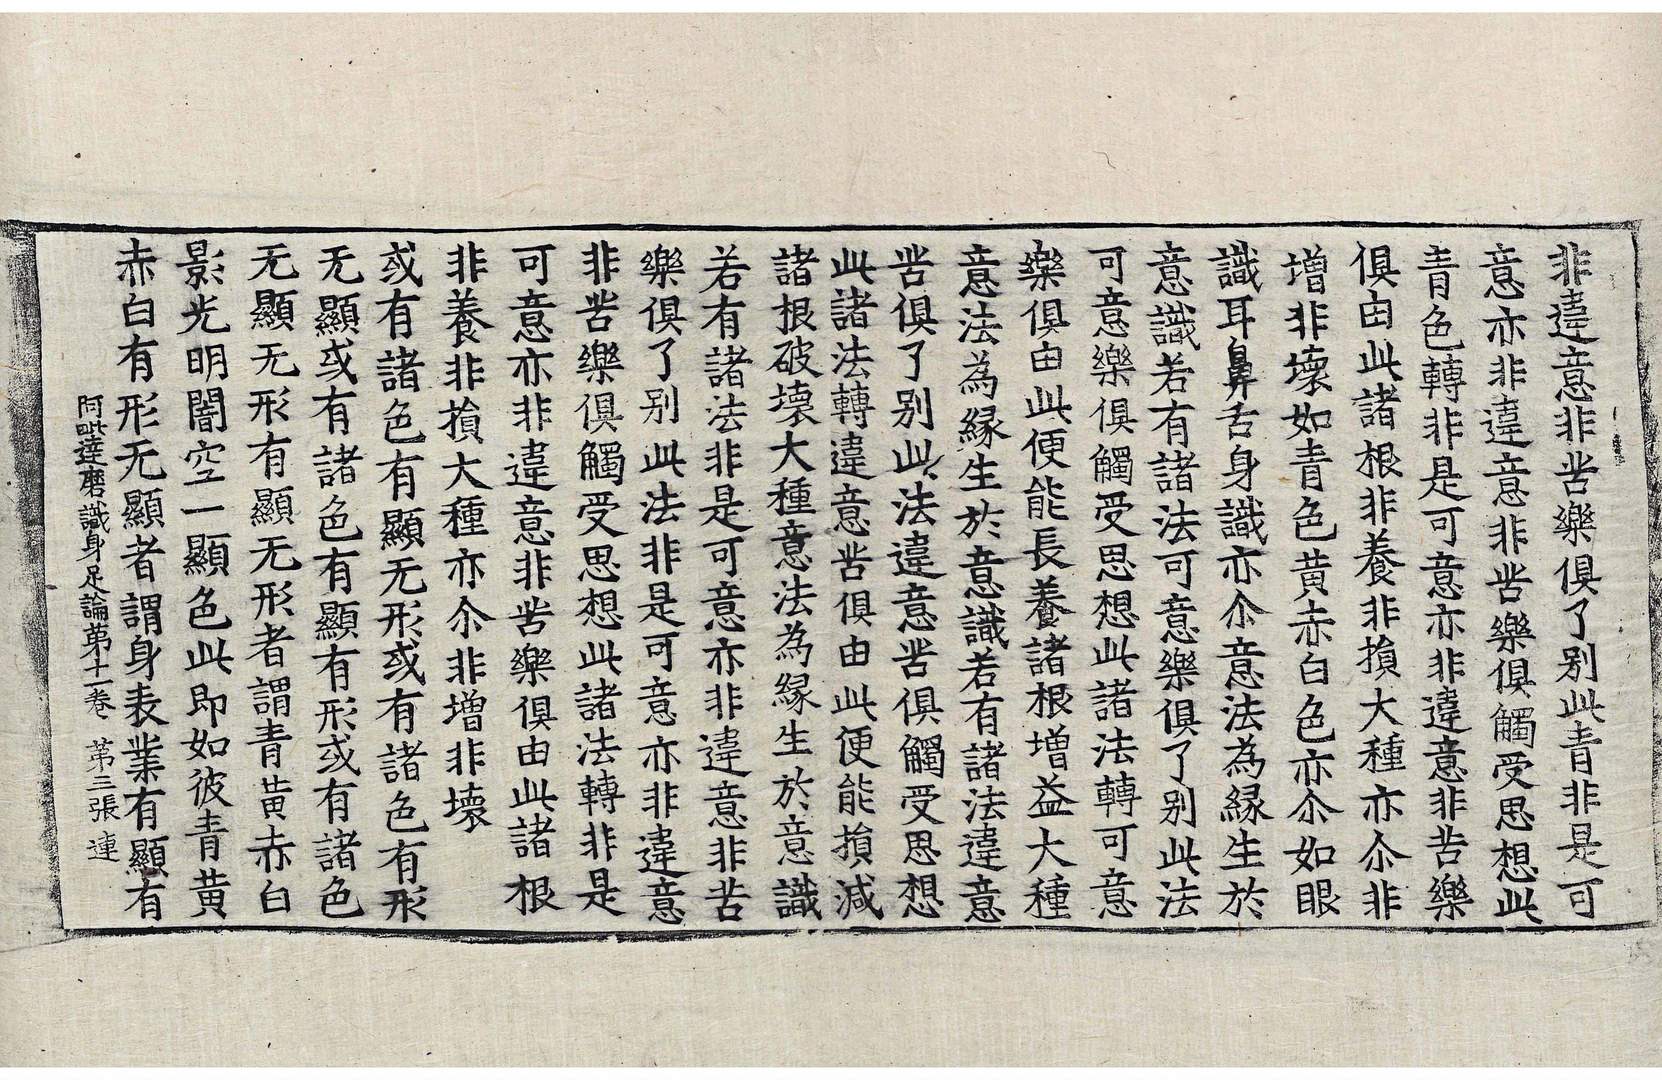 非違意非苦樂俱了别此青非是可
意亦非違意非苦樂俱觸受思想此
青色轉非是可意亦非違意非苦樂
俱由此諸根非養非損大種亦尒非
增非壞如青色黄赤白色亦尒如眼
識耳鼻舌身識亦尒意法為縁生於
意識若有諸法可意樂俱了别此法
可意樂俱觸受思想此諸法轉可意
樂俱由此便能長養諸根增益大種
意法為縁生於意識若有諸法違意
苦俱了别此法違意苦俱觸受思想
此諸法轉違意苦俱由此便能損減
諸根破壞大種意法為縁生於意識
若有諸法非是可意亦非違意非苦
樂俱了别此法非是可意亦非違意
非苦樂俱觸受思想此諸法轉非是
可意亦非違意非苦樂俱由此諸根
非養非損大種亦尒非增非壞
或有諸色有顯无形或有諸色有形
无顯或有諸色有顯有形或有諸色
无顯无形有顯无形者謂青黄赤白
影光明闇空一顯色此即如彼青黄
赤白有形无顯者謂身表業有顯有
阿毗達磨識身足論第十一卷 第三張 連